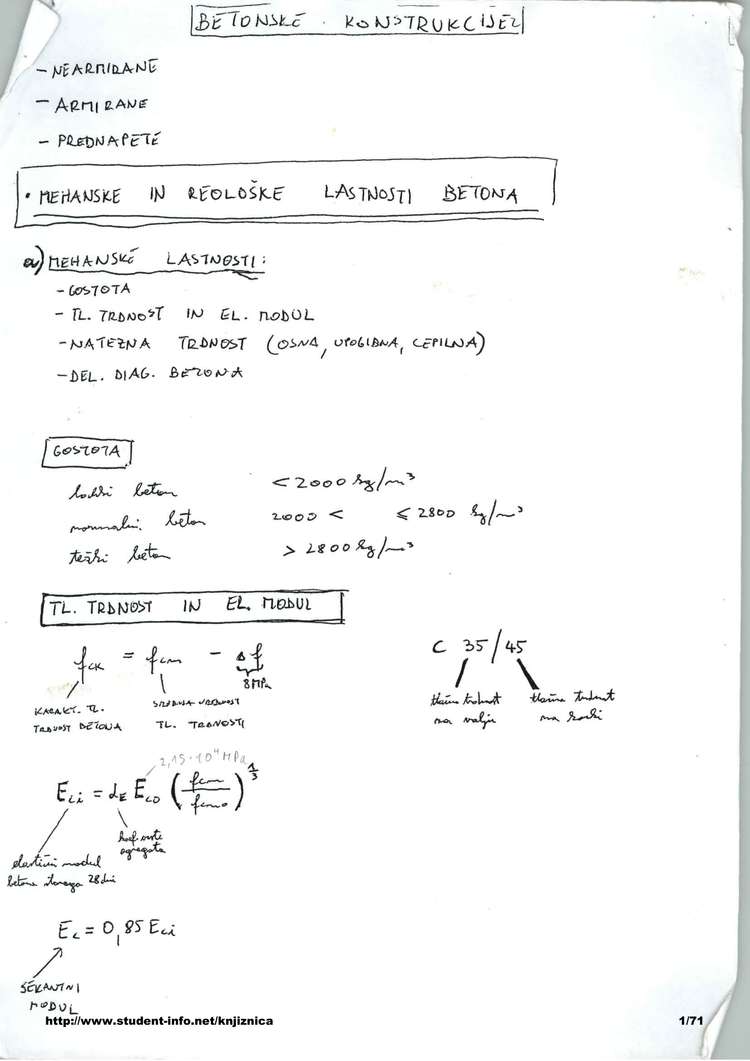 BETONSKE KONSTRUKCIJE 2
- NEARMIRANE
- ARMIRANE
- PREDNAPETE
• MEHANSKE IN REOLOŠKE LASTNOSTI BETONA
a) MEHANSKE LASTNOSTI:
- GOSTOTA
- TL. TRDNOST IN EL. MODUL
- NATEZNA TRDNOST (OSNA, UPOGIBNA, CEPILNA)
- DEL. DIAG. BETONA
GOSTOTA
lahki beton < 2000 kg/m³
normalni beton 2000 < ≤ 2800 kg/m³
težki beton > 2800 kg/m³
TL. TRDNOST IN EL. MODUL
fck = fcm - Δf
8MPa
KARAKT. TL. TRDNOST BETONA
SREDNJA VREDNOST TL. TRDNOSTI
C 35/45
tlačna trdnost na valju
tlačna trdnost na kocki
2,15·10⁴ MPa
Eci = αE Eco (fcm/fcmo)^1/3
koef. vrste agregata
elastični modul betona starega 28 dni
Ec = 0,85 Eci
SEKANTNI MODUL
http://www.student-info.net/knjiznica 1/71